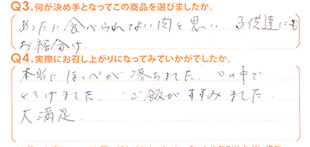 Q3.何が決め手となってこの商品を選びましたか。
めったに食べられない肉と思い 子供達にも
お裾分け
Q4.実際にお召し上がりになってみていかがでしたか。
本当にほっぺが落ちました。口の中で
とろけました。ご飯がすすみました。
大満足